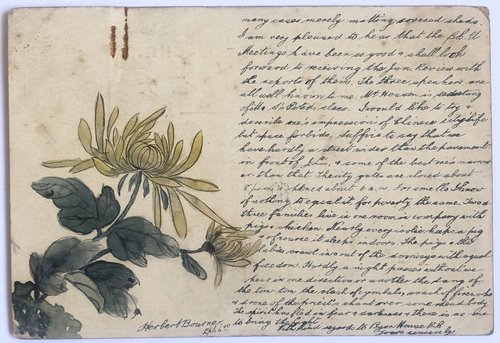 many cases merely matting covered sheds.
I am very pleased to hear that the B.C.U
Meetings have been so good & shall look
forward to receiving the Jan. Review with
the reports of them. The three speakers are
all well known to me. Mr Heaven is
of Mr class. I would like to try &
describe one's impressions of Chinese city life
but space forbids, suffice to say that we
have hardly a street wider than the pavement
in front of & some of the best ones narrow
er than that. The city gates are closed about
8 p.m. & opened about 6 a.m. For smells I know
of nothing to equal it, for poverty the same. Two or
three families live in one room in company with
pigs & chicken. Nearly every one keeps a pig
& of course it sleeps indoors. The pigs & the
babies crawl in & out of the doorways with equal
freedom. Hardly a night passes without we
hear in one direction or another the bang of
the tom tom, the clash of cymbals, crack of fireworks
& drone of the priests chant over some dead body.
The spirit has fled in fear & darkness & there is no one
to bring the light.
With kind regards to House
Yours sincerely
Herbert Bourne